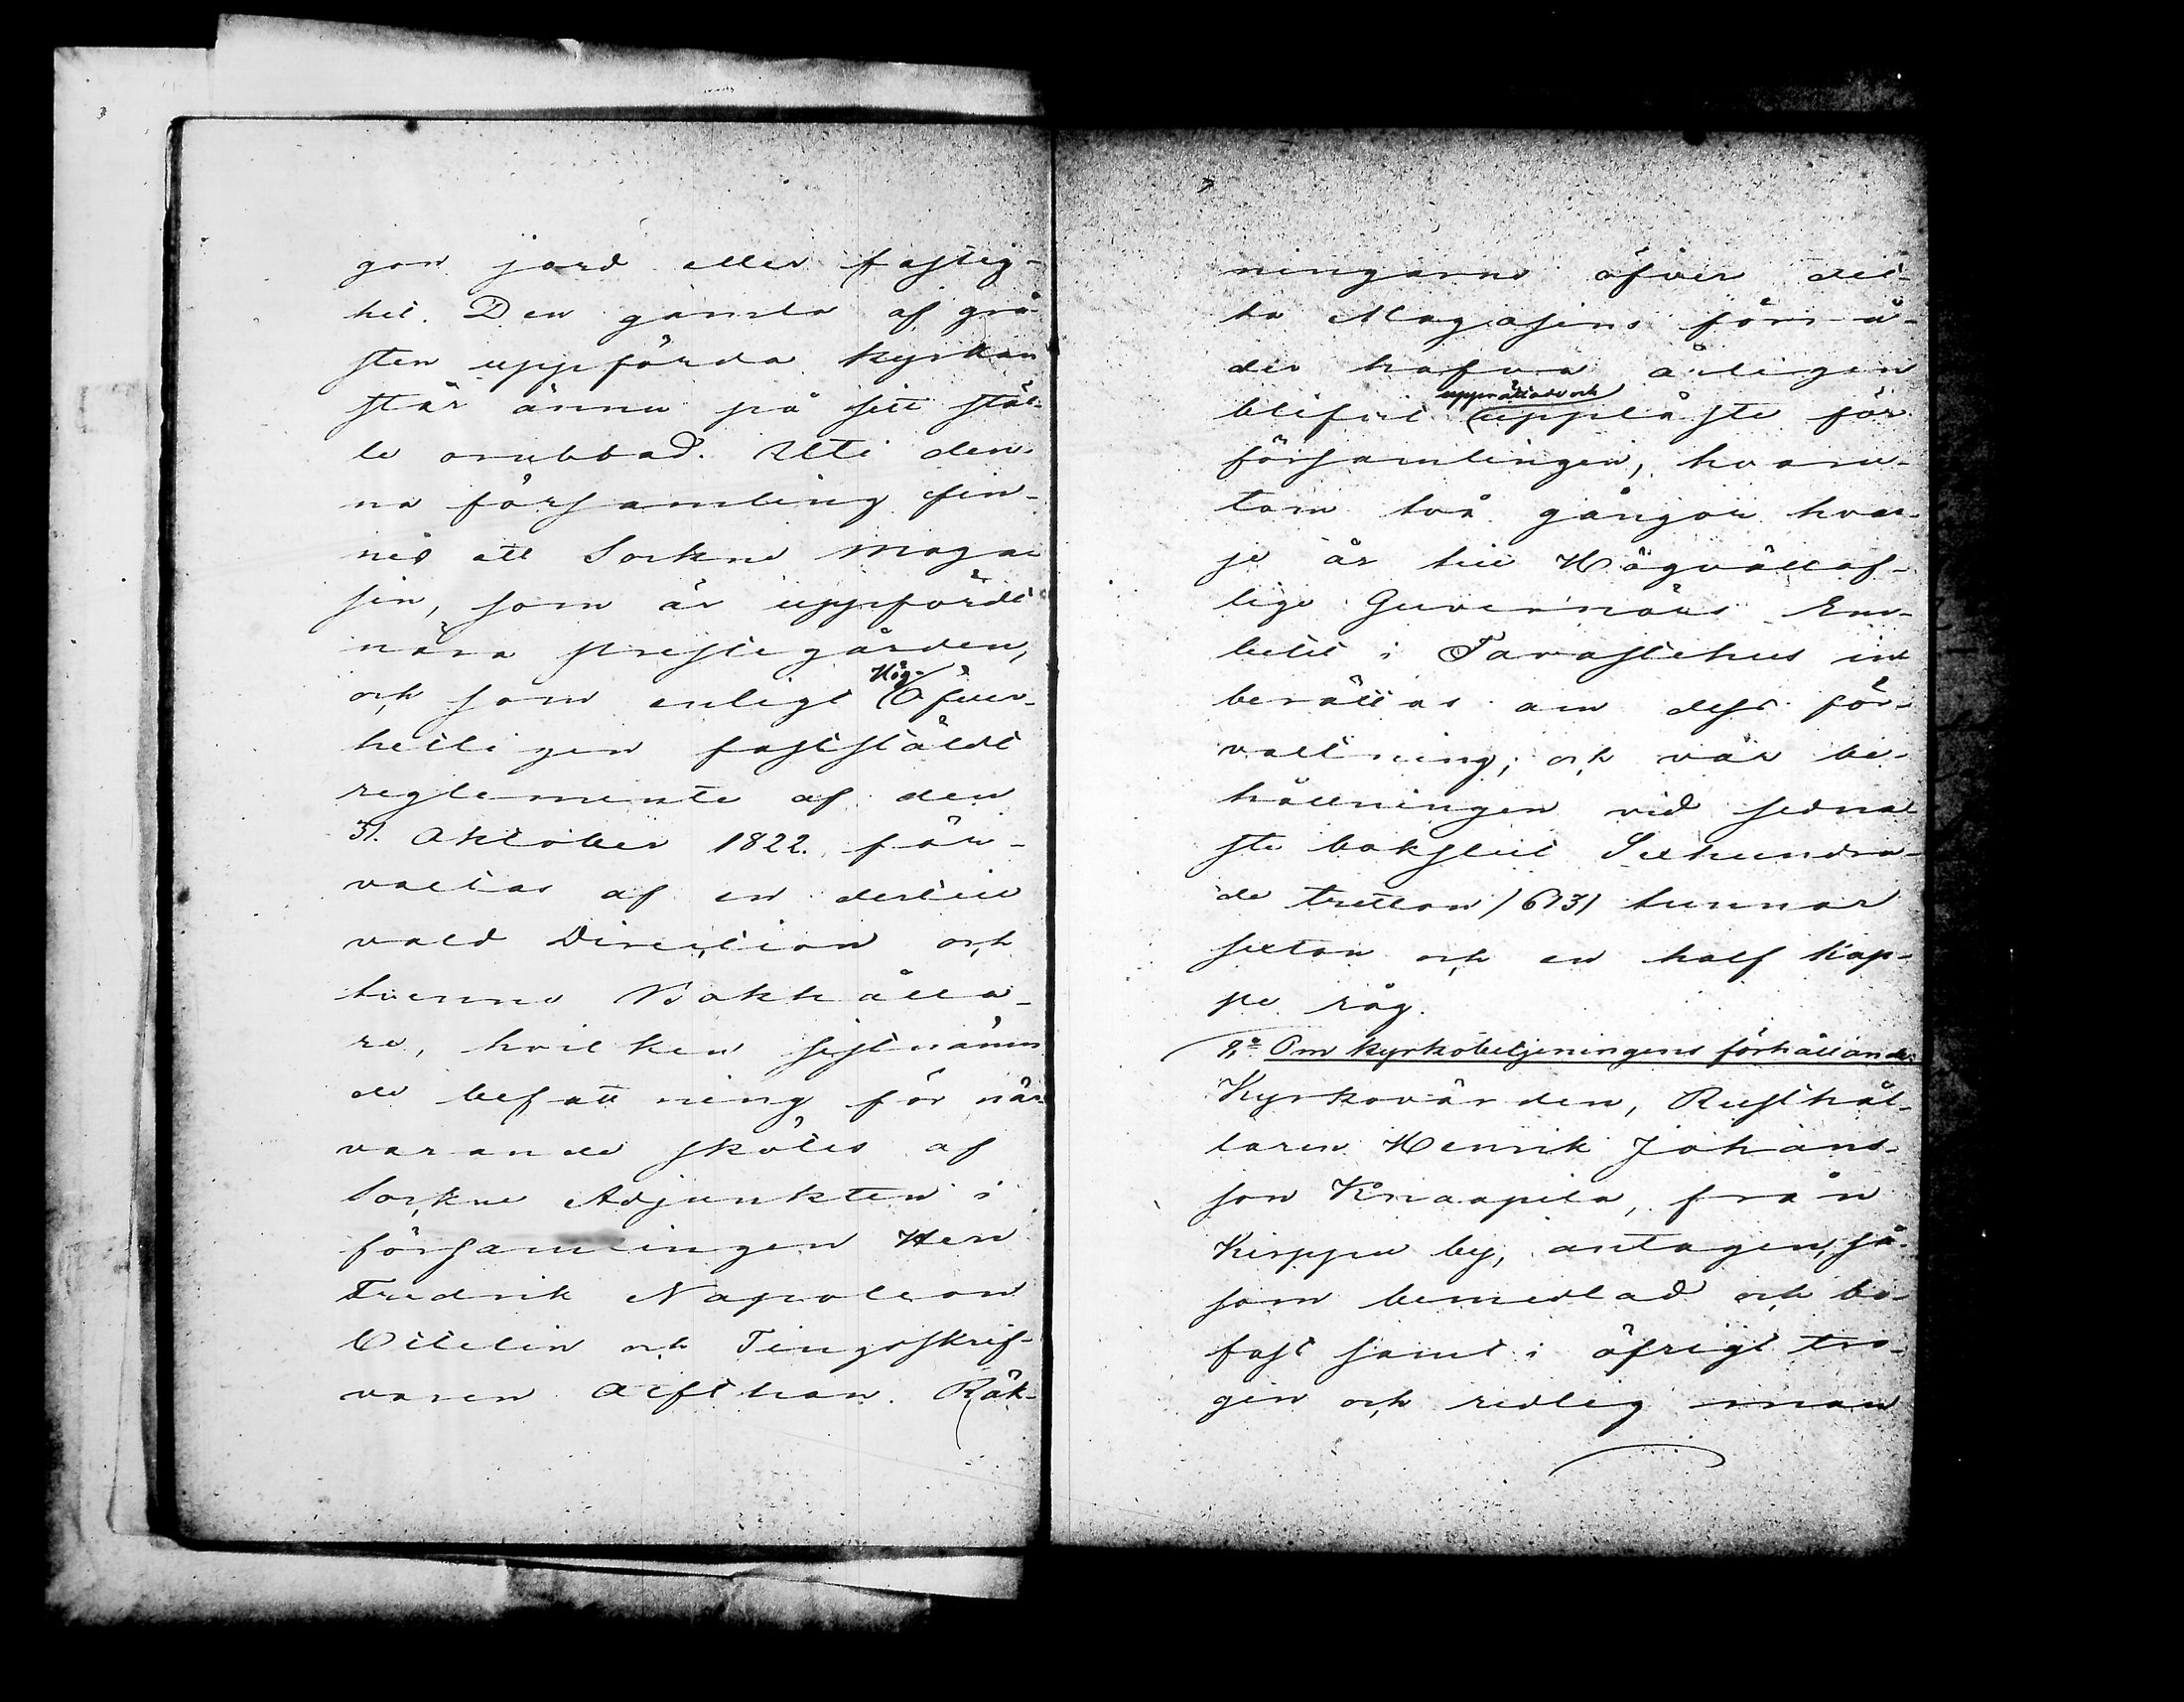 gon jord eller fastig-
het. Den gamla af grå-
sten uppförda kyrkan
står ännu på sitt stäl-
le orubbad. Uti den-
na församling fin-
nes ett Sockne maga-
sin, som är uppfördt
nära prestegården,
Hög-
och som enligt Öfver-
hetligen fastställdt
reglemente af den
31. Oktober 1822. för-
valtas af en dertill
vald Direction och
tvenne Bokhålla-
re, hvilken sistnämn
de befattning för när-
varande skötes af
Sockne Adjunkten i
församlingen Herr
Fredrik Napoleon
och Tingsskrif-
varen Alfthan. Räk-
ningarne öfver det-
ta Magasins förrå-
der hafva årligen
upprättade och
blifvit uppläste för
församlingen, hvaru-
tom två gånger hvar-
je år till Högvällof-
lige Guvernörs Em-
betet i Tavastehus in
berättas om dess för-
valtning; och var be-
hållningen vid sedna-
ste bokslut Sexhundra-
de tretton /613/ tunnor
sexton och en half kap-
pe råg.
8:o Om Kyrkobetjeningens förhållande.
Kyrkovärden, Rusthål-
laren Henrik Johans-
son Knaapila, från
Kirppu by, antagen, så-
som bemedlad och bo-
fast samt i öfrigt tro-
gen och redlig man